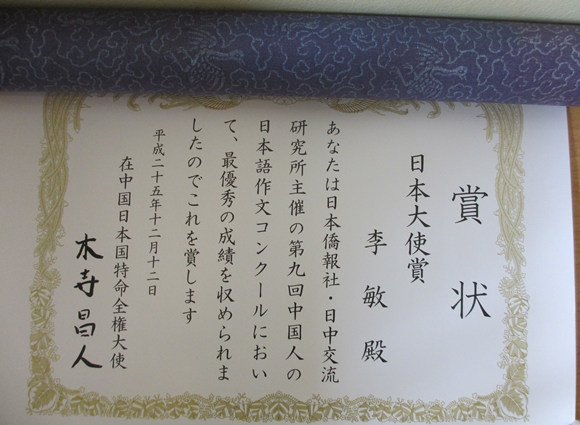 賞状
日本大使賞
李敏殿
あなたは日本僑報社・日中交流
研究所主催の第九回中国人の
日本語作文コンクールにおい
て、最優秀の成績を収められま
したのでこれを賞します
平成二十五年十二月十二日
在中国日本国特命全権大使
木寺昌人